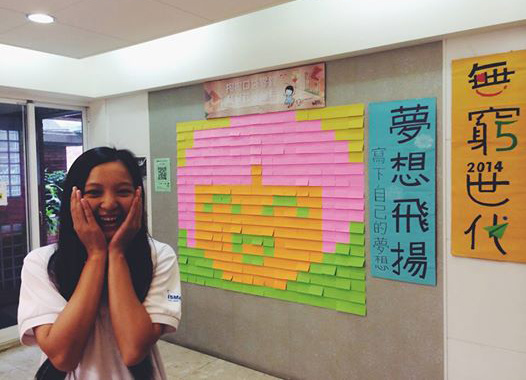 夢想飛揚
寫下自己的夢想
無窮
2014
世代